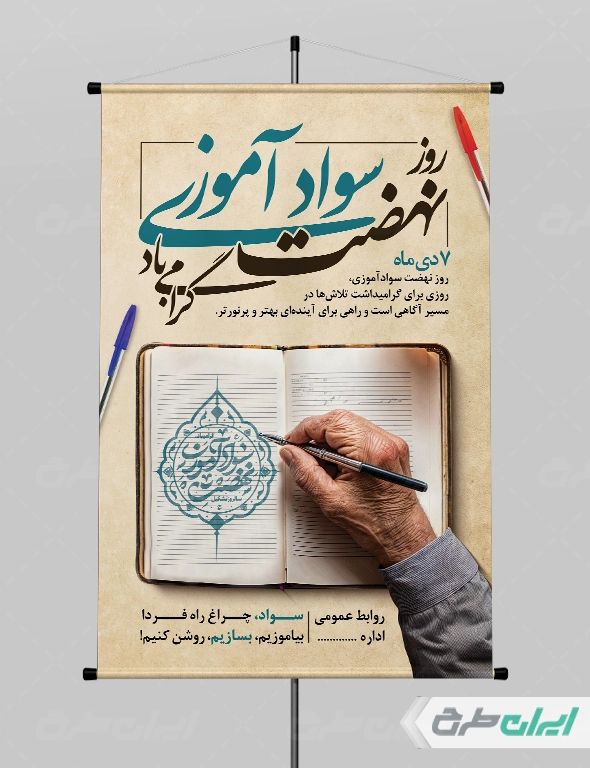 روز
نهضت سوادآموزی
گرامی باد
۷ دی ماه
روز نهضت سوادآموزی،
روزی برای گرامیداشت تلاش‌ها در
مسیر آگاهی است و راهی برای آینده‌ای بهتر و پرنورتر.
نهضت سوادآموزی
روابط عمومی
اداره .............
سواد، چراغ راه فردا
بیاموزیم، بسازیم، روشن کنیم!
ایران طرح